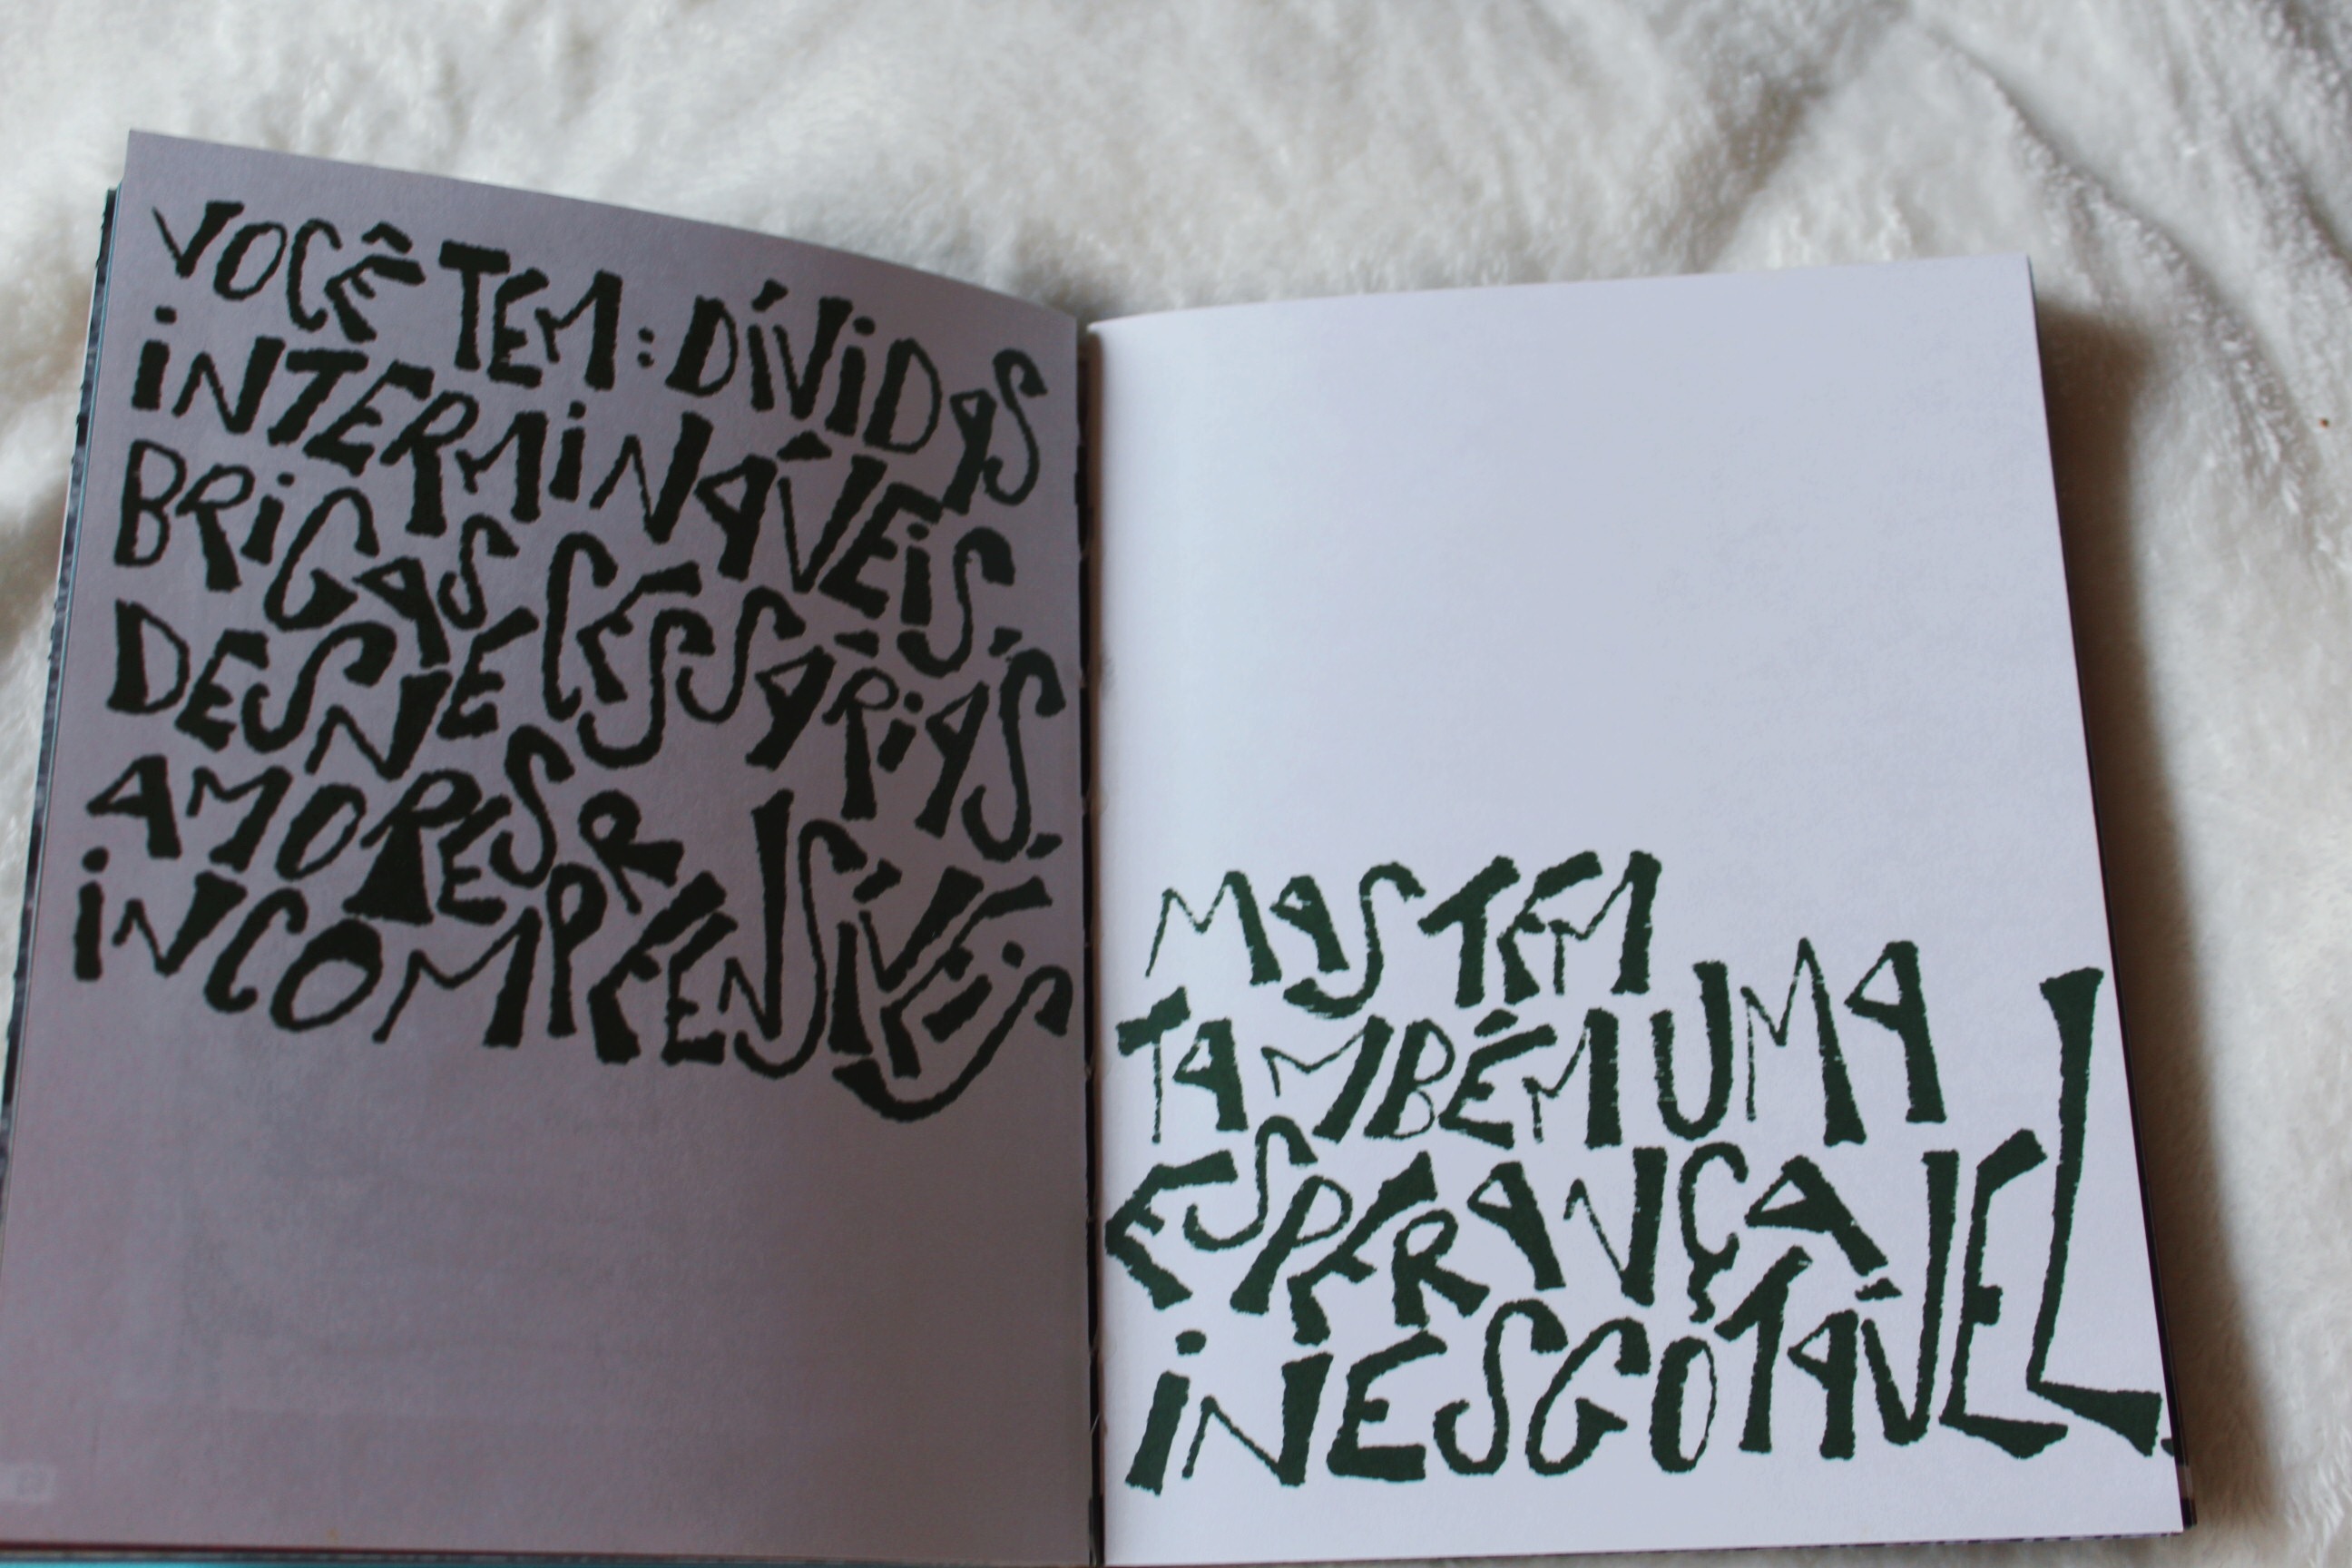 VOCÊ TEM: DÍVIDAS
INTERMINÁVEIS,
BRIGAS
DESNECESSÁRIAS,
AMORES
INCOMPREENSÍVEIS
MAS TEM
TAMBÉM UMA
ESPERANÇA
INESGOTÁVEL.